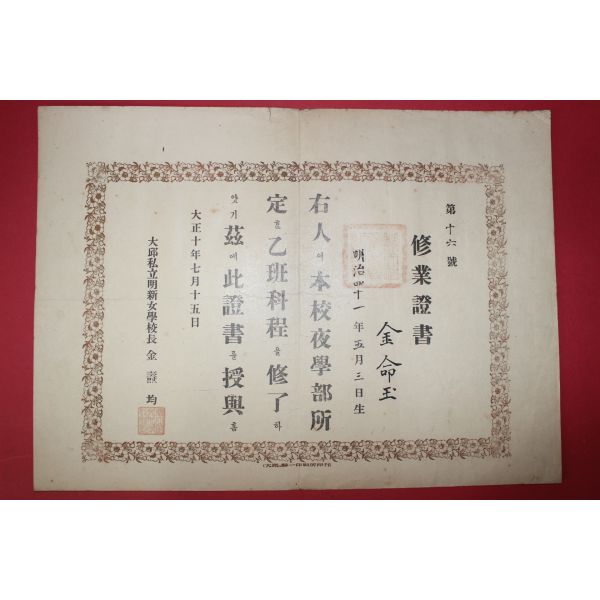 第十六號
修業證書
金命玉
明治四十一年五月三日生
右人이本校夜學部所
定한乙班科程을修了하
얏기玆에此證書를授與홈
大正十年七月十五日
大邱私立明新女學校長 金 均